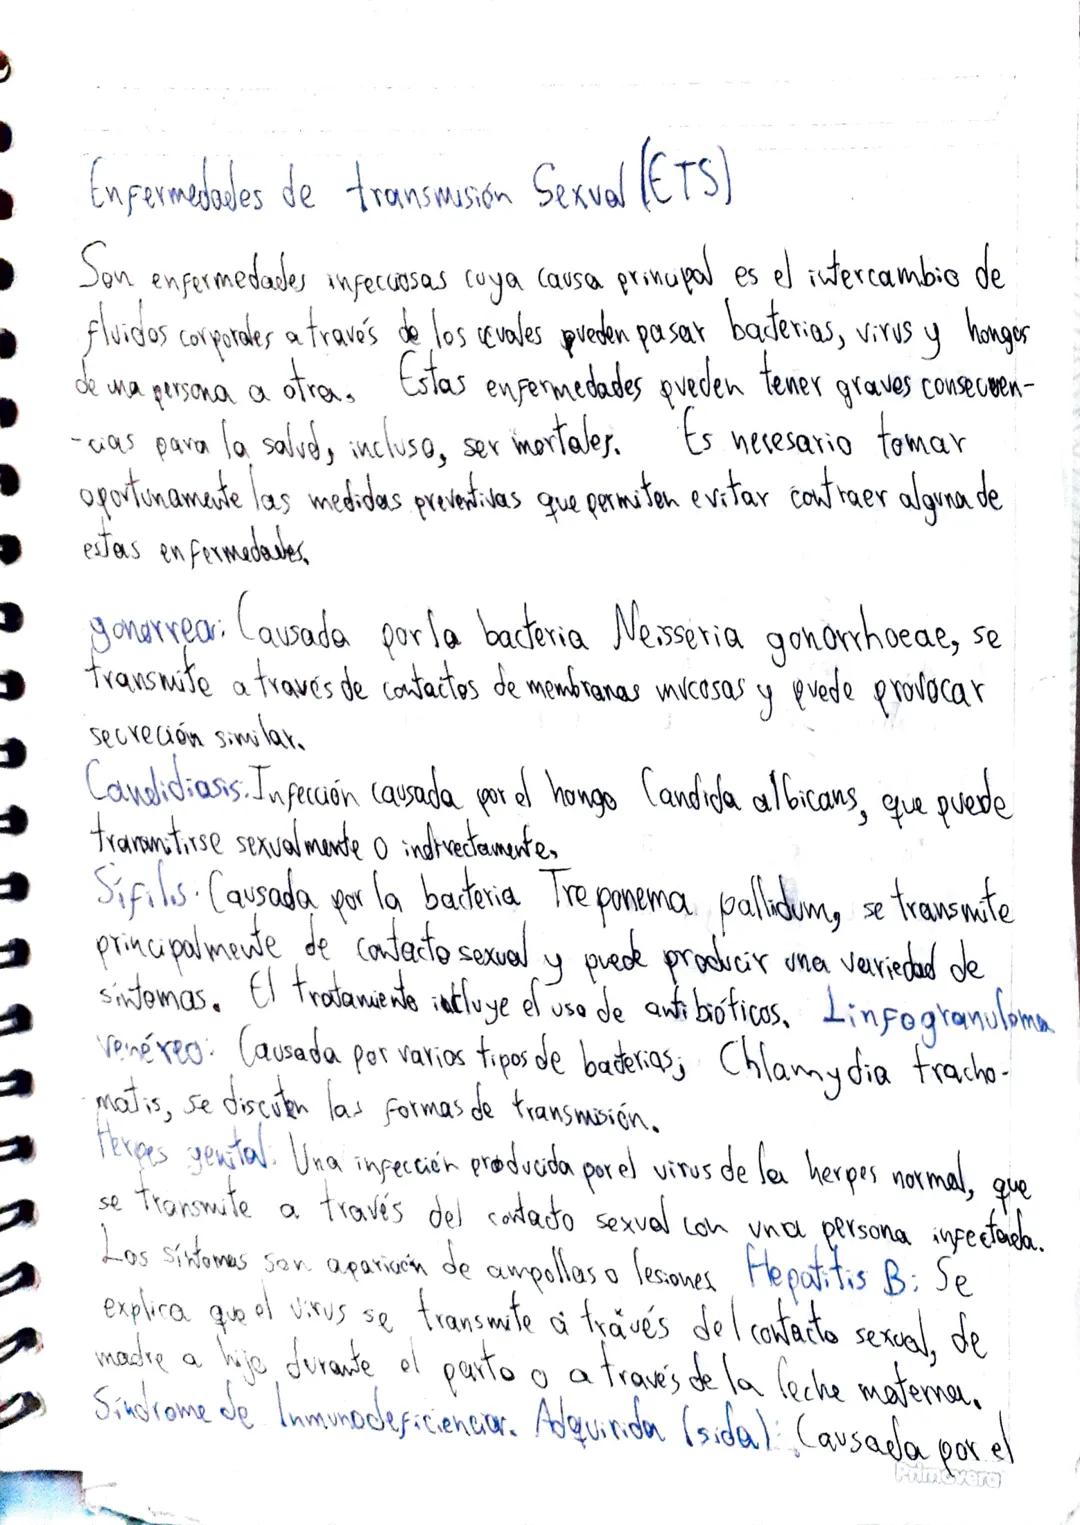 Enfermedades de transmisión Sexual (ETS)
Son enfermedades infecciosas cuya causa principal es el intercambio de
fluidos corporales a través de los cuales pueden pasar bacterias, virus y hongos
de una persona a otra. Estas enfermedades pueden tener graves consecuen-
-cias para la salud, incluso, ser mortales. Es necesario tomar
oportunamente las medidas preventivas que permiten evitar contraer alguna de
estas enfermedades.
gonorrea: Causada por la bacteria Neisseria gonorrhoeae, se
transmite a través de contactos de membranas mucosas y puede provocar
secreción similar.
Candidiasis: Infección causada por el hongo Candida albicans, que puede
transmitirse sexualmente o indirectamente.
Sífilis. Causada por la bacteria Treponema pallidum, se transmite
principalmente de contacto sexual y puede producir una variedad de
síntomas. El tratamiento incluye el uso de antibióticos. Linfogranuloma
venéreo: Causada por varios tipos de bacterias; Chlamydia tracho-
matis, se discuten las formas de transmisión.
Herpes genital: Una infección producida por el virus de la herpes normal, que
se transmite a través del contacto sexual con una persona infectada.
Los síntomas son aparición de ampollas o lesiones Hepatitis B: Se
explica que el virus se transmite a través del contacto sexual, de
madre a hijo durante el parto o a través de la leche materna.
Síndrome de Inmunodeficiencia. Adquirida (sida): Causada por el
Primavera